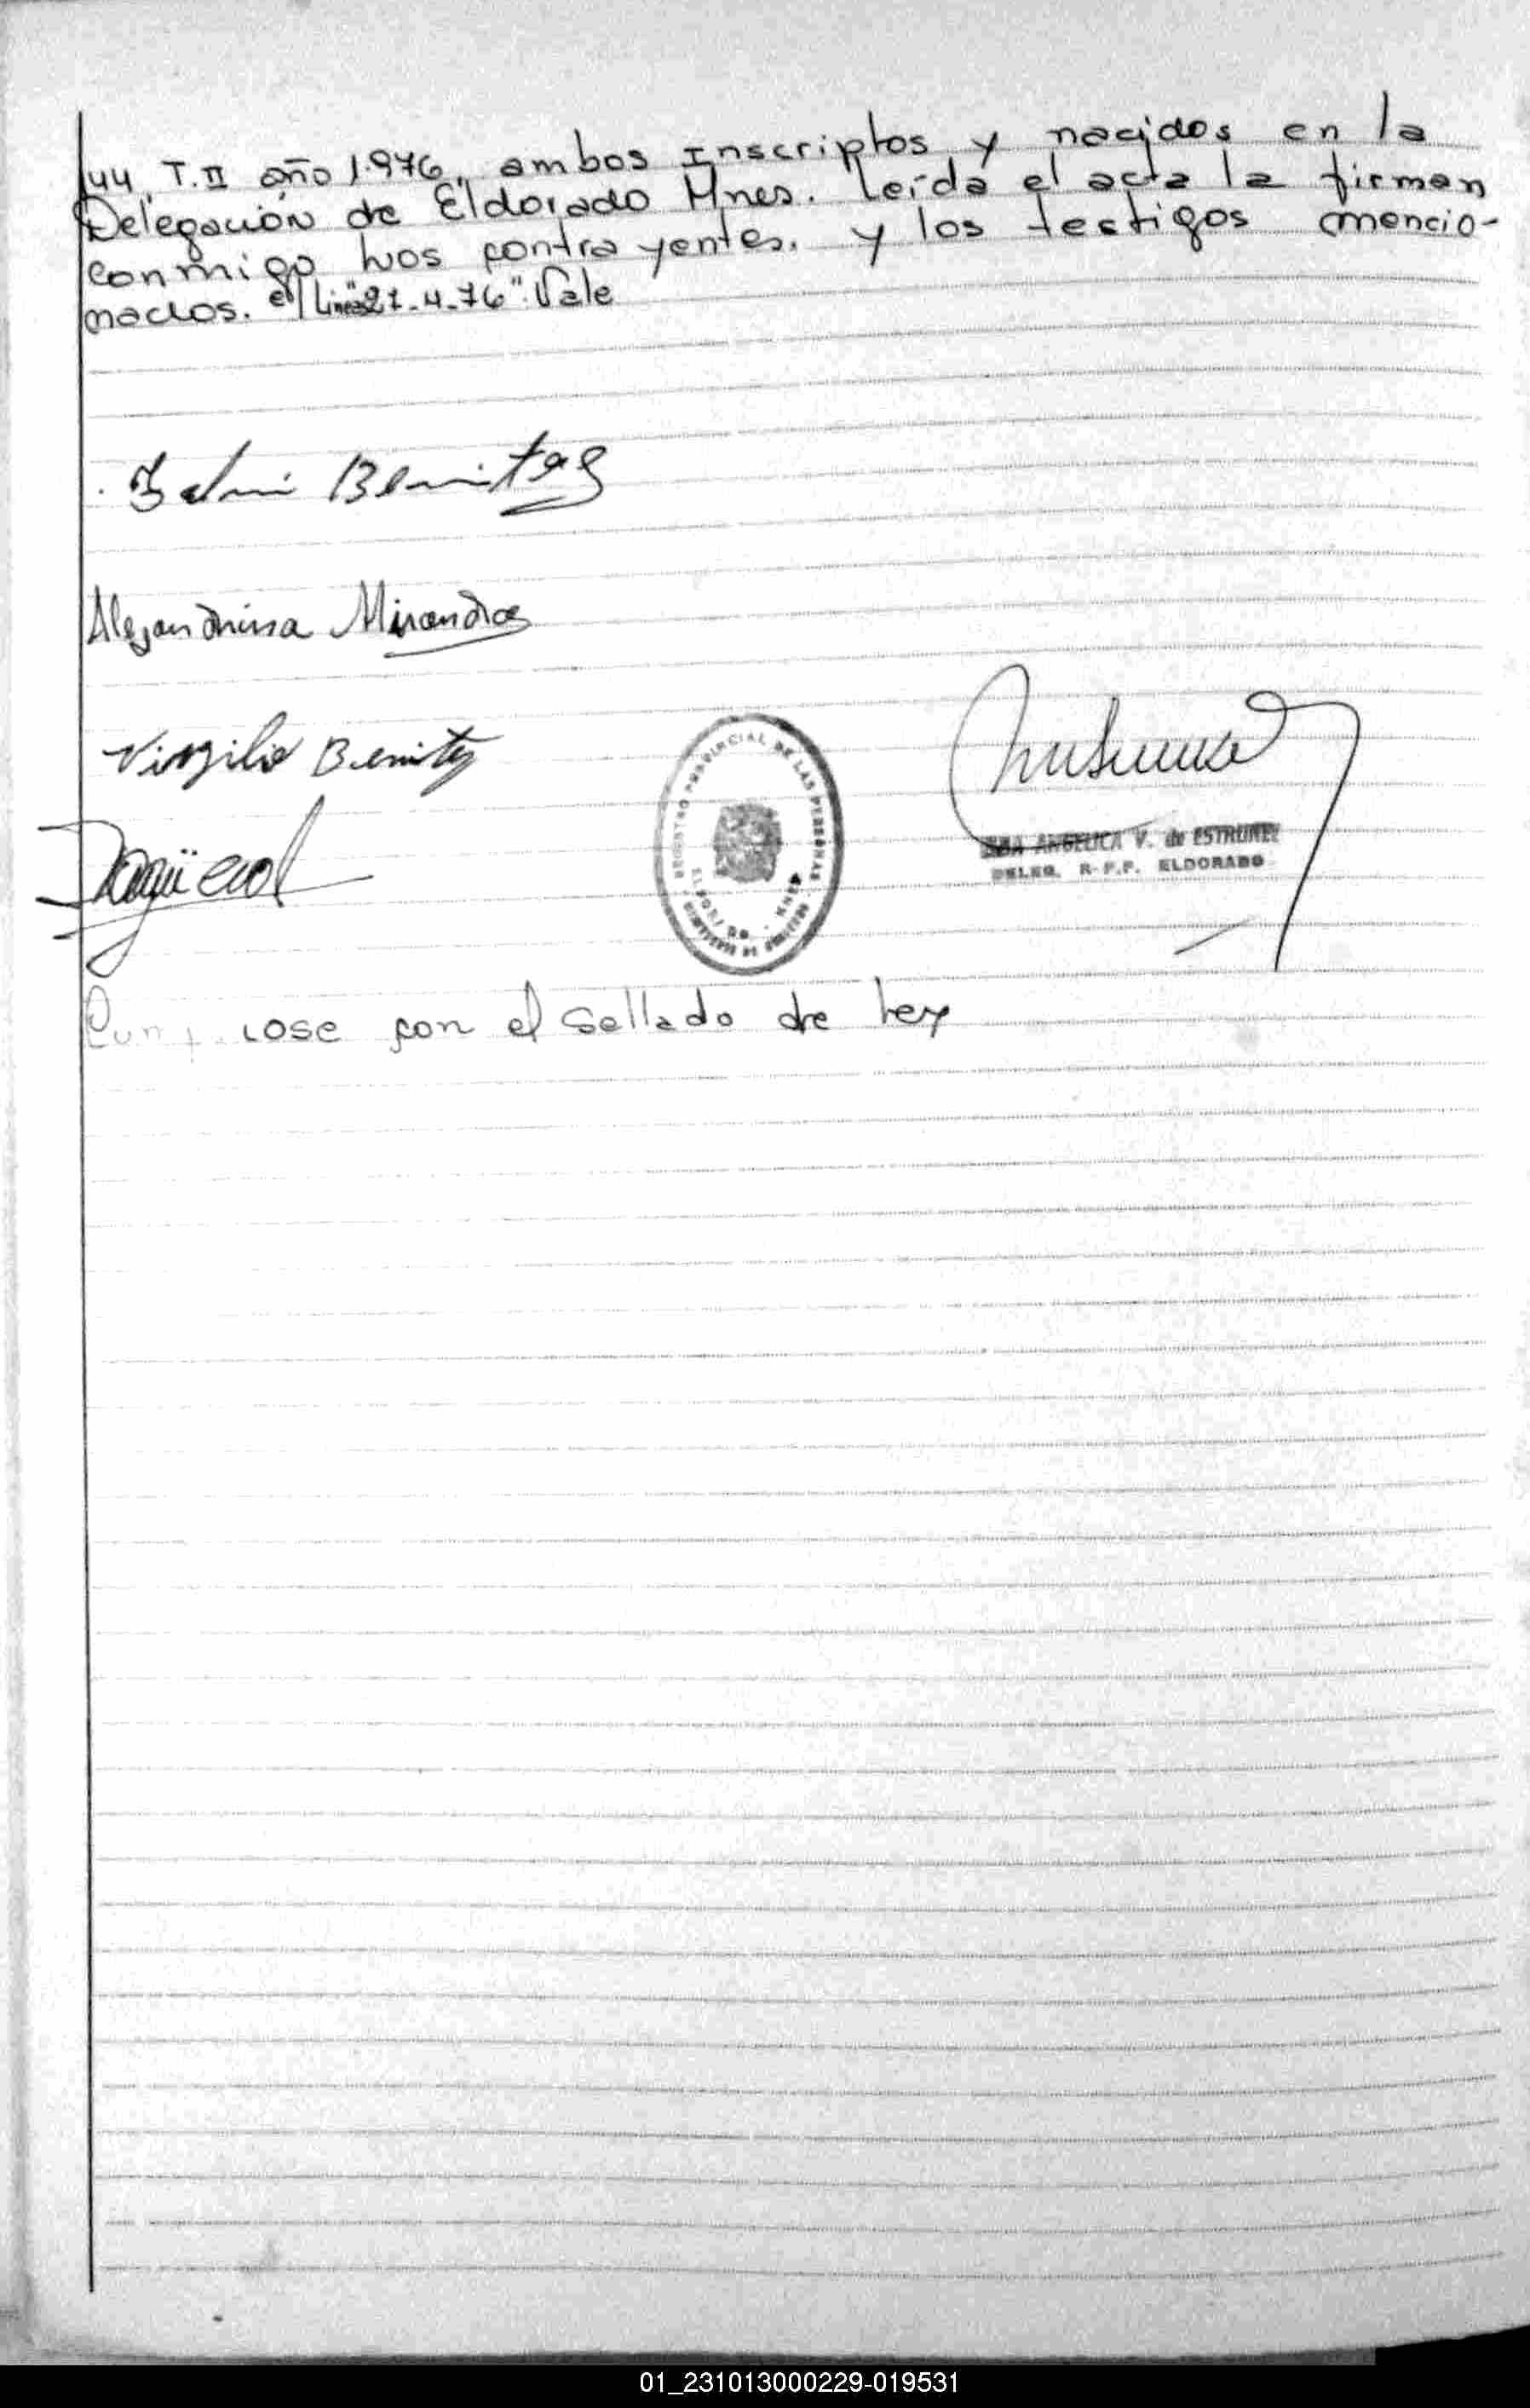 44, T.II año 1.976, ambos Inscriptos y nacidos en la
Delegación de Eldorado Mnes. Leída el acta la firman
conmigo los contrayentes. y los testigos mencio-
nados. e/ Línea "21-4-76" Vale
Benitez
Alejandrina Miranda
Virgilio Benitez
REGISTRO PROVINCIAL DE LAS PERSONAS
ELDORADO - MNES
ANGELICA V. de
DELEG. R.P.P. ELDORADO
con el Sellado de Ley
01_231013000229-019531